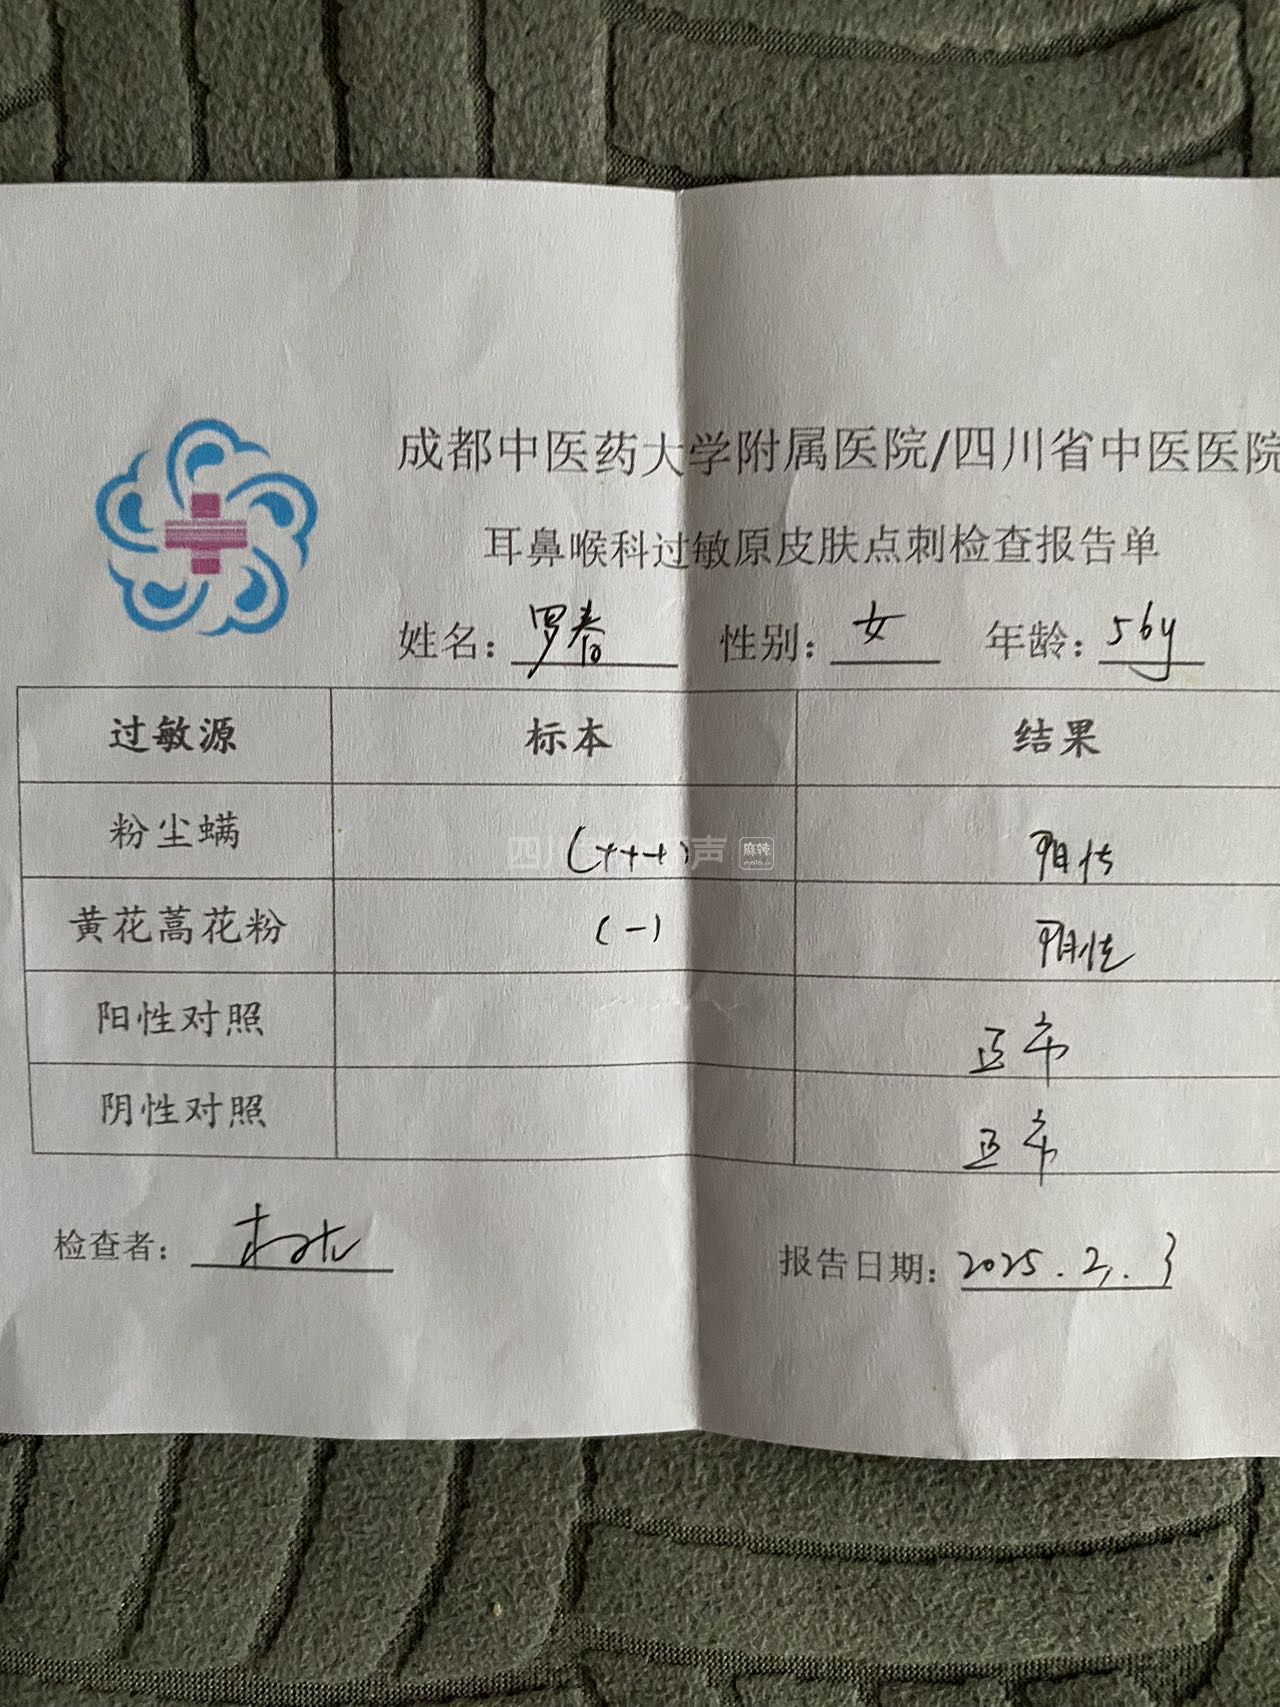 成都中医药大学附属医院/四川省中医医院
耳鼻喉科过敏原皮肤点刺检查报告单
姓名：罗春 性别：女 年龄：56y
过敏源 标本 结果
粉尘螨 (+++) 阳性
黄花蒿花粉 (-) 阴性
阳性对照 正常
阴性对照 正常
检查者：
报告日期：2025.2.3
四川 声 麻辣